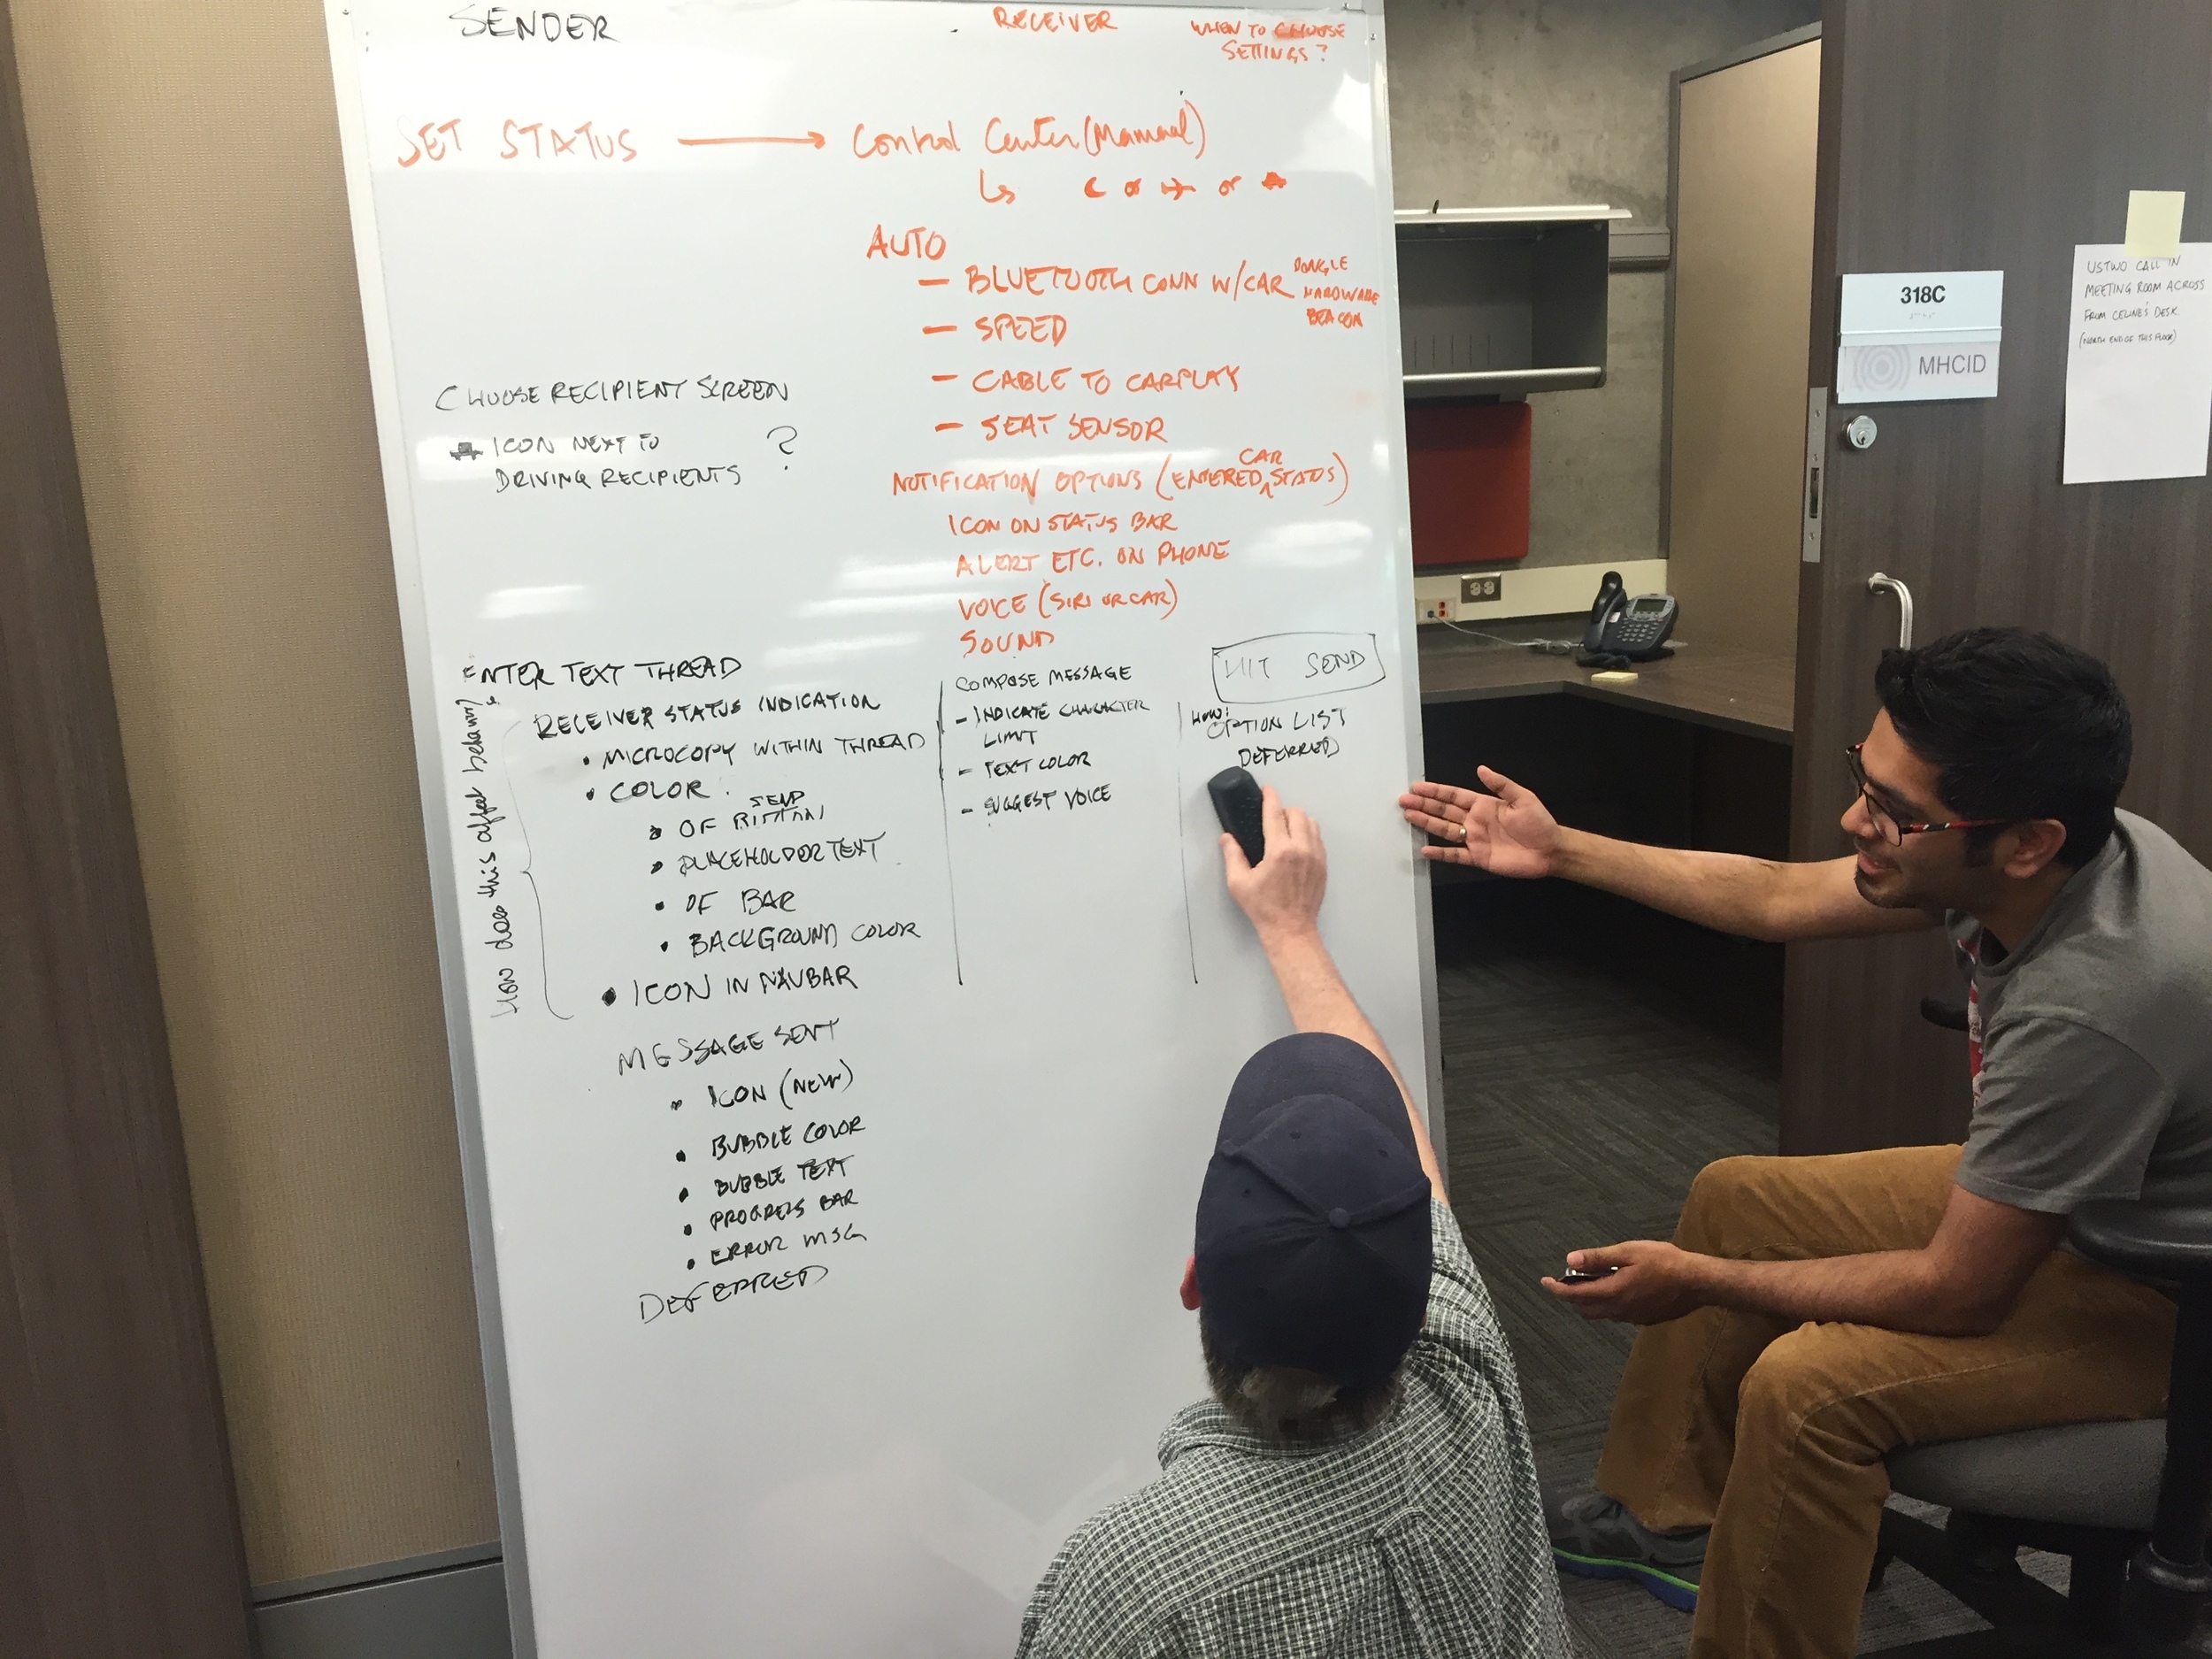 SENDER
RECEIVER
WHEN TO CHOOSE
SETTINGS?
SET STATUS
Control Center (Manual)
or or
AUTO
— BLUETOOTH CONN W/CAR
DONGLE
HARDWARE
BEACON
— SPEED
— CABLE TO CARPLAY
— SEAT SENSOR
NOTIFICATION OPTIONS (ENTERED CAR STATUS)
ICON ON STATUS BAR
ALERT ETC. ON PHONE
VOICE (SIRI OR CAR)
SOUND
CHOOSE RECIPIENT SCREEN
ICON NEXT TO
DRIVING RECIPIENTS
?
ENTER TEXT THREAD
How does this affect behavior?
RECEIVER STATUS INDICATION
• MICROCOPY WITHIN THREAD
• COLOR:
• OF SEND BUTTON
• PLACEHOLDER TEXT
• OF BAR
• BACKGROUND COLOR
• ICON IN NAVBAR
MESSAGE SENT
• ICON (NEW)
• BUBBLE COLOR
• BUBBLE TEXT
• PROGRESS BAR
• ERROR MSG
DEFERRED
COMPOSE MESSAGE
- INDICATE CHARACTER
LIMIT
- TEXT COLOR
- SUGGEST VOICE
HIT SEND
HOW:
OPTION LIST
DEFERRED
318C
MHCID
USTWO CALL IN
MEETING ROOM ACROSS
FROM CELINE'S DESK.
(NORTH END OF THIS FLOOR)